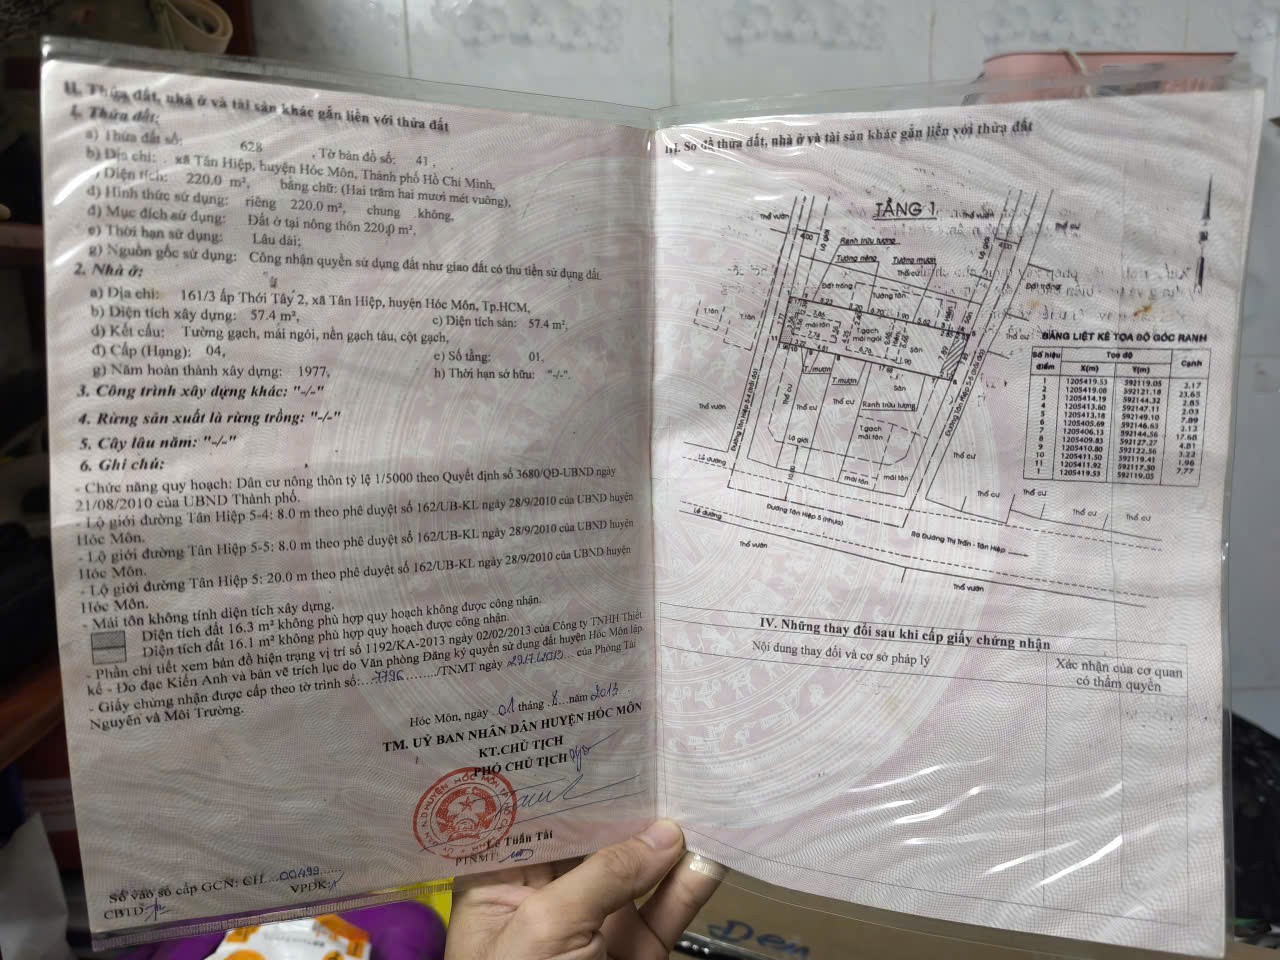 II. Thửa đất, nhà ở và tài sản khác gắn liền với thửa đất
1. Thửa đất:
a) Thửa đất số: 628 , Tờ bản đồ số: 41 ,
b) Địa chỉ: . xã Tân Hiệp, huyện Hóc Môn, Thành phố Hồ Chí Minh,
) Diện tích: 220.0 m², bằng chữ: (Hai trăm hai mươi mét vuông),
d) Hình thức sử dụng: riêng 220.0 m², chung không,
đ) Mục đích sử dụng: Đất ở tại nông thôn 220.0 m²,
e) Thời hạn sử dụng: Lâu dài;
g) Nguồn gốc sử dụng: Công nhận quyền sử dụng đất như giao đất có thu tiền sử dụng đất.
2. Nhà ở:
a) Địa chỉ: 161/3 ấp Thới Tây 2, xã Tân Hiệp, huyện Hóc Môn, Tp.HCM,
b) Diện tích xây dựng: 57.4 m², c) Diện tích sàn: 57.4 m²,
d) Kết cấu: Tường gạch, mái ngói, nền gạch tàu, cột gạch,
đ) Cấp (Hạng): 04, e) Số tầng: 01,
g) Năm hoàn thành xây dựng: 1977, h) Thời hạn sở hữu: "-/-".
3. Công trình xây dựng khác: "-/-"
4. Rừng sản xuất là rừng trồng: "-/-"
5. Cây lâu năm: "-/-"
6. Ghi chú:
- Chức năng quy hoạch: Dân cư nông thôn tỷ lệ 1/5000 theo Quyết định số 3680/QĐ-UBND ngày
21/08/2010 của UBND Thành phố.
- Lộ giới đường Tân Hiệp 5-4: 8.0 m theo phê duyệt số 162/UB-KL ngày 28/9/2010 của UBND huyện
Hóc Môn.
- Lộ giới đường Tân Hiệp 5-5: 8.0 m theo phê duyệt số 162/UB-KL ngày 28/9/2010 của UBND huyện
Hóc Môn.
- Lộ giới đường Tân Hiệp 5: 20.0 m theo phê duyệt số 162/UB-KL ngày 28/9/2010 của UBND huyện
Hóc Môn.
- Mái tôn không tính diện tích xây dựng.
Diện tích đất 16.3 m² không phù hợp quy hoạch không được công nhận.
Diện tích đất 16.1 m² không phù hợp quy hoạch được công nhận.
- Phần chi tiết xem bản đồ hiện trạng vị trí số 1192/KA-2013 ngày 02/02/2013 của Công ty TNHH Thiết
kế - Đo đạc Kiến Anh và bản vẽ trích lục do Văn phòng Đăng ký quyền sử dụng đất huyện Hóc Môn lập.
- Giấy chứng nhận được cấp theo tờ trình số: 7796 /TNMT ngày 29/7/2013 của Phòng Tài
Nguyên và Môi Trường.
Hóc Môn, ngày 01 tháng 8 năm 2013
TM. UỶ BAN NHÂN DÂN HUYỆN HÓC MÔN
KT.CHỦ TỊCH
PHÓ CHỦ TỊCH
Lê Tuấn Tài
PTNMT:
Số vào sổ cấp GCN: CH 00499
VPĐK:
CBTD:
III. Sơ đồ thửa đất, nhà ở và tài sản khác gắn liền với thửa đất
TẦNG 1
Thổ vườn
Lộ giới
Ranh trừ lượng
Tường riêng
Tường mượn
Thổ cư
Đất trống
Đất trống
Tường tôn
T.tôn
T.tôn
mái tôn
T.gạch
mái ngói
Hiên
Sân
T. mượn
T.mượn
Sân
Thổ cư
Thổ cư
Thổ cư
Ranh trừ lượng
T.gạch
mái tôn
Lộ giới
mái tôn
mái tôn
Thổ vườn
Đường Tân Hiệp 5-4 (Đất đỏ)
Đường Tân Hiệp 5-5 (Đất đỏ)
Lề đường
Đường Tân Hiệp 5 (Nhựa)
Lề đường
Ra Đường Thị Trấn - Tân Hiệp
Thổ vườn
Thổ vườn
Thổ cư
Thổ cư
Thổ cư
Thổ cư
BẢNG LIỆT KÊ TỌA ĐỘ GÓC RANH
Số hiệu điểm Tọa độ Cạnh
X(m) Y(m)
1 1205419.53 592119.05
2 1205419.08 592121.18 2.17
3 1205414.19 592144.32 23.65
4 1205413.60 592147.11 2.85
5 1205413.18 592149.10 2.03
6 1205405.69 592146.63 7.89
7 1205406.13 592144.56 2.12
8 1205409.83 592127.27 17.68
9 1205410.80 592122.56 4.81
10 1205411.50 592119.41 3.22
11 1205411.92 592117.50 1.96
1 1205419.53 592119.05 7.77
IV. Những thay đổi sau khi cấp giấy chứng nhận
Nội dung thay đổi và cơ sở pháp lý
Xác nhận của cơ quan
có thẩm quyền
Đen